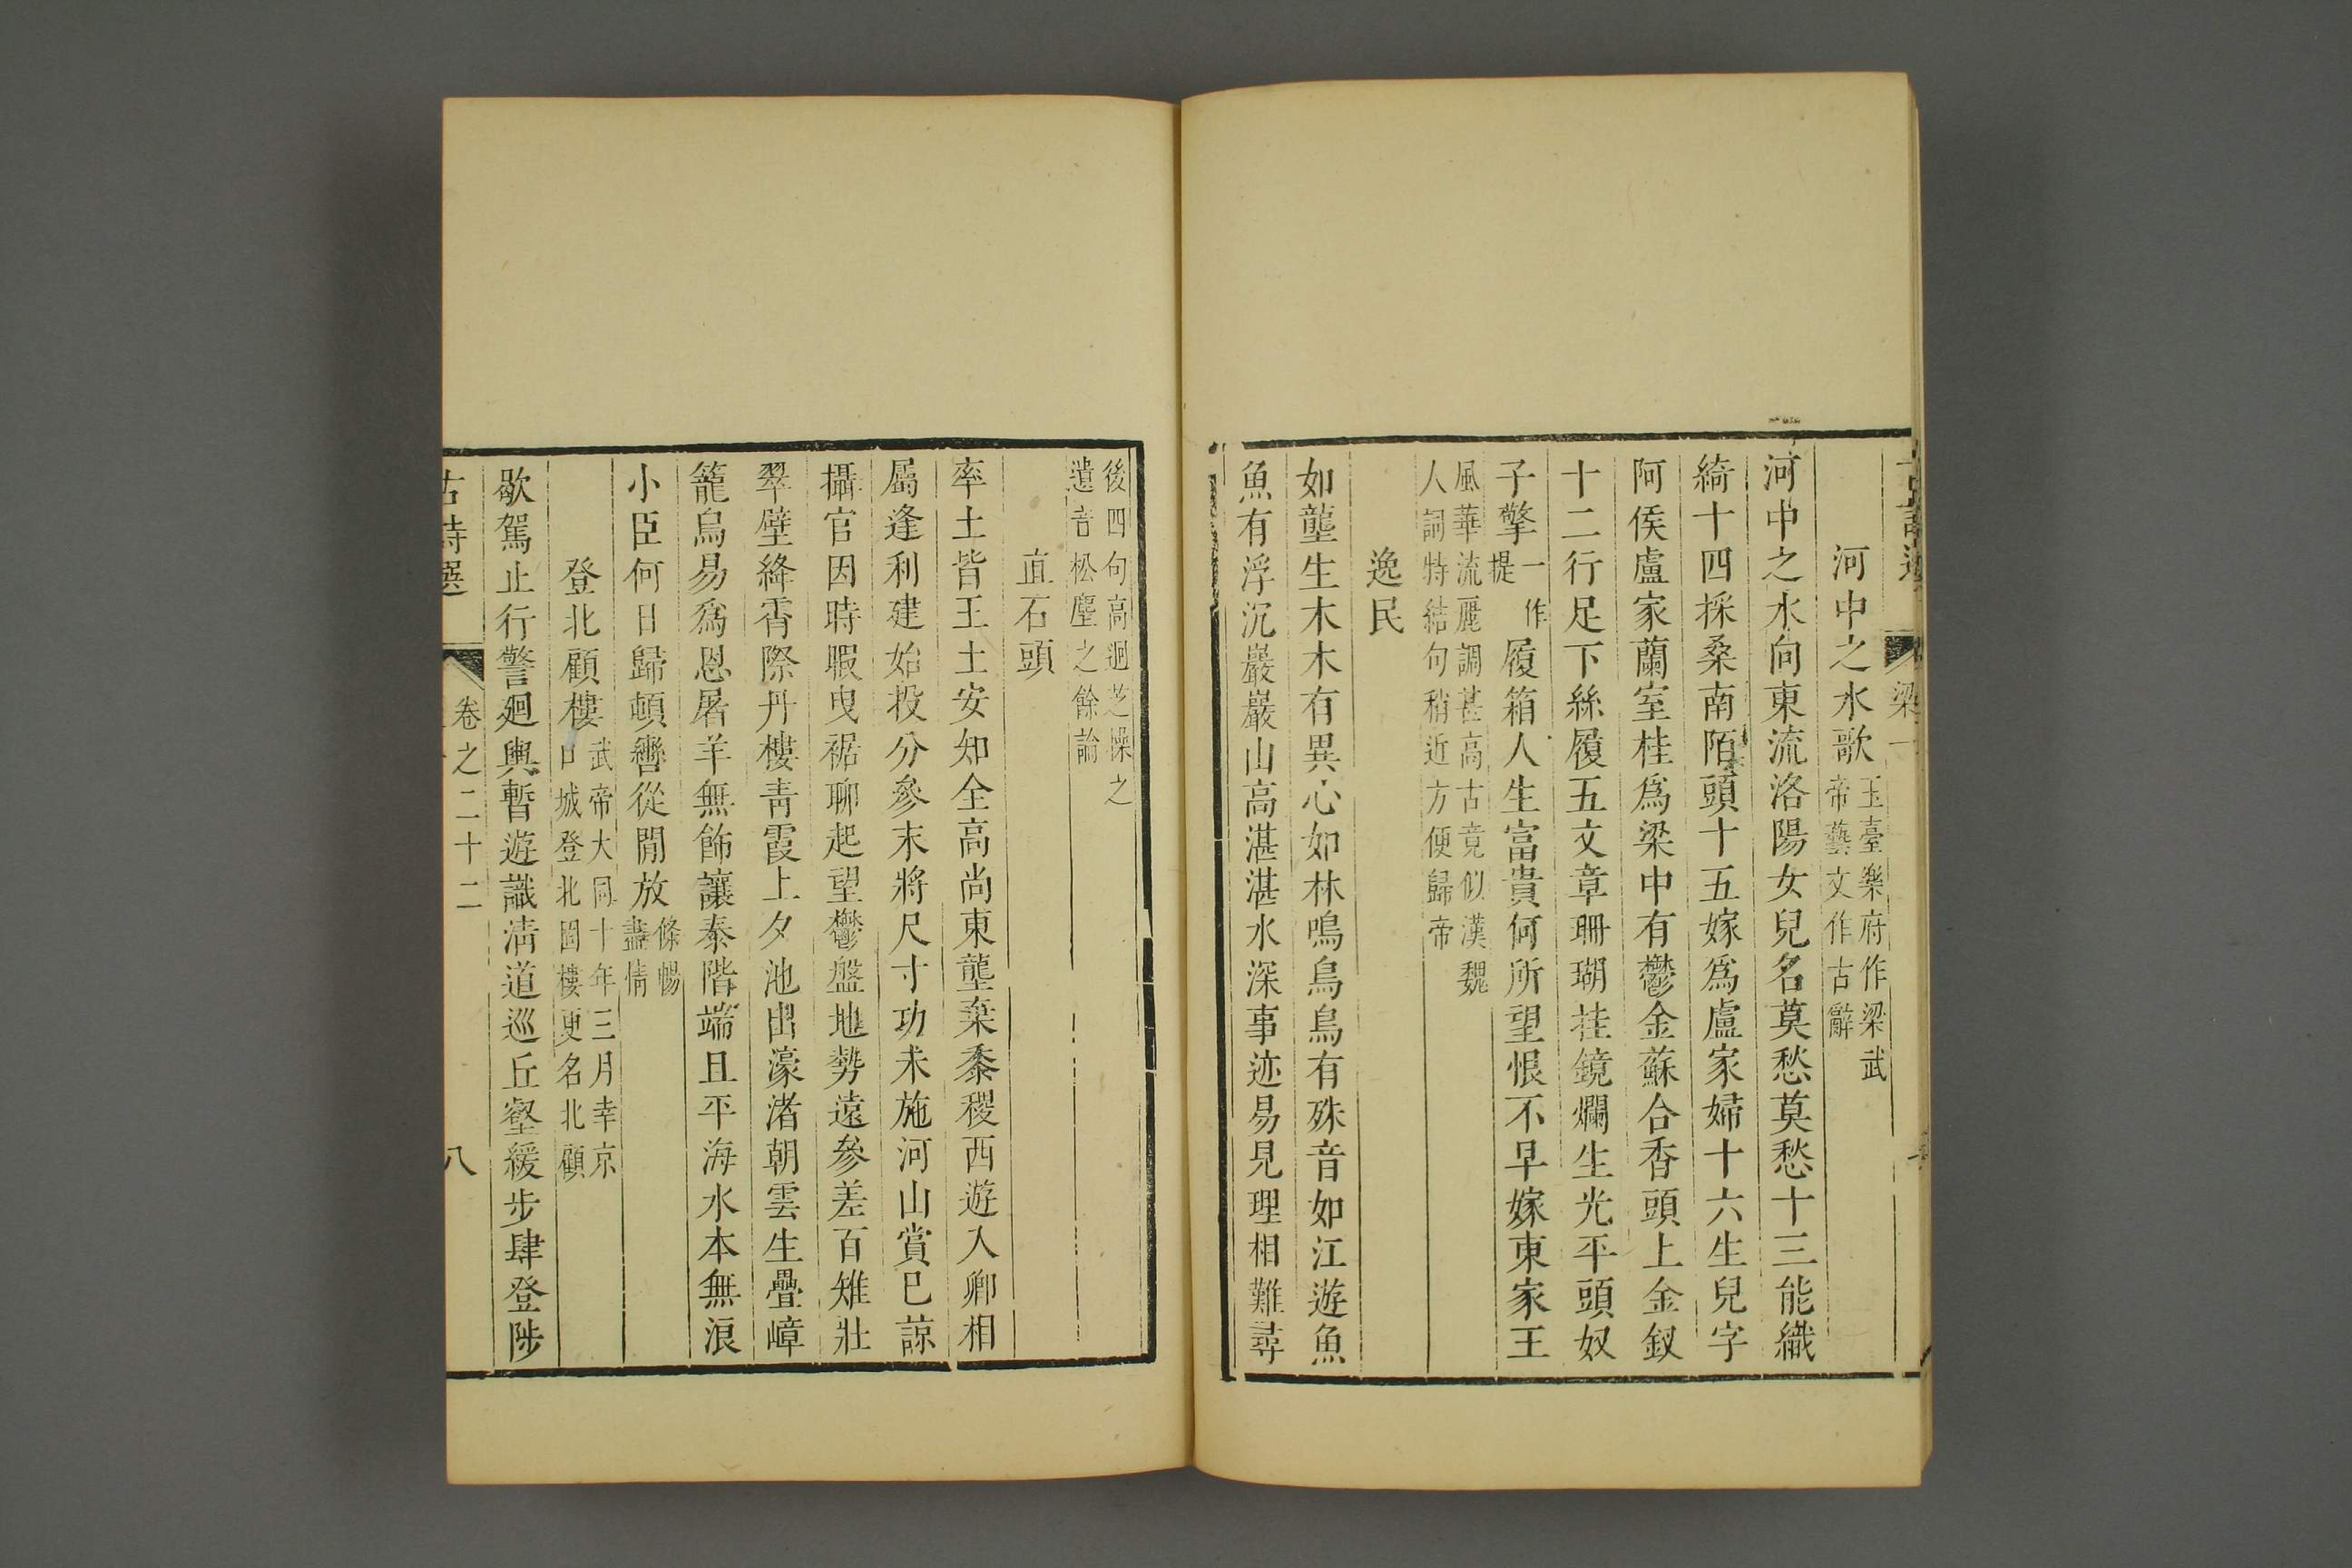 河中之水歌玉臺樂府作梁武帝藝文作古辭
河中之水向東流洛陽女兒名莫愁莫愁十三能織
綺十四採桑南陌頭十五嫁爲盧家婦十六生兒字
阿侯盧家蘭室桂爲梁中有鬱金蘇合香頭上金釵
十二行足下絲履五文章珊瑚挂鏡爛生光平頭奴
子擎一作提履箱人生富貴何所望恨不早嫁東家王
風華流麗調甚高古竟似漢魏
人詞特結句稍近方便歸帝
逸民
如壟生木木有異心如林鳴鳥鳥有殊音如江遊魚
魚有浮沉巖巖山高湛湛水深事迹易見理相難尋
後四句高迥芝操之
遺音松塵之餘論
直石頭
率土皆王土安知全高尚東壟棄黍稷西遊入卿相
屬逢利建始投分參末將尺寸功未施河山賞已諒
攝官因時暇曳裾聊起望鬱盤地勢遠參差百雉壯
翠壁絳霄際丹樓青霞上夕池出濠渚朝雲生疊嶂
籠鳥易爲恩屠羊無飾讓泰階端且平海水本無浪
小臣何日歸頓轡從閒放條暢盡情
登北顧樓武帝大同十年三月幸京口城登北固樓更名北顧
歇駕止行警廻輿暫遊識清道巡丘壑緩步肆登陟
古詩選
卷之二十二
八